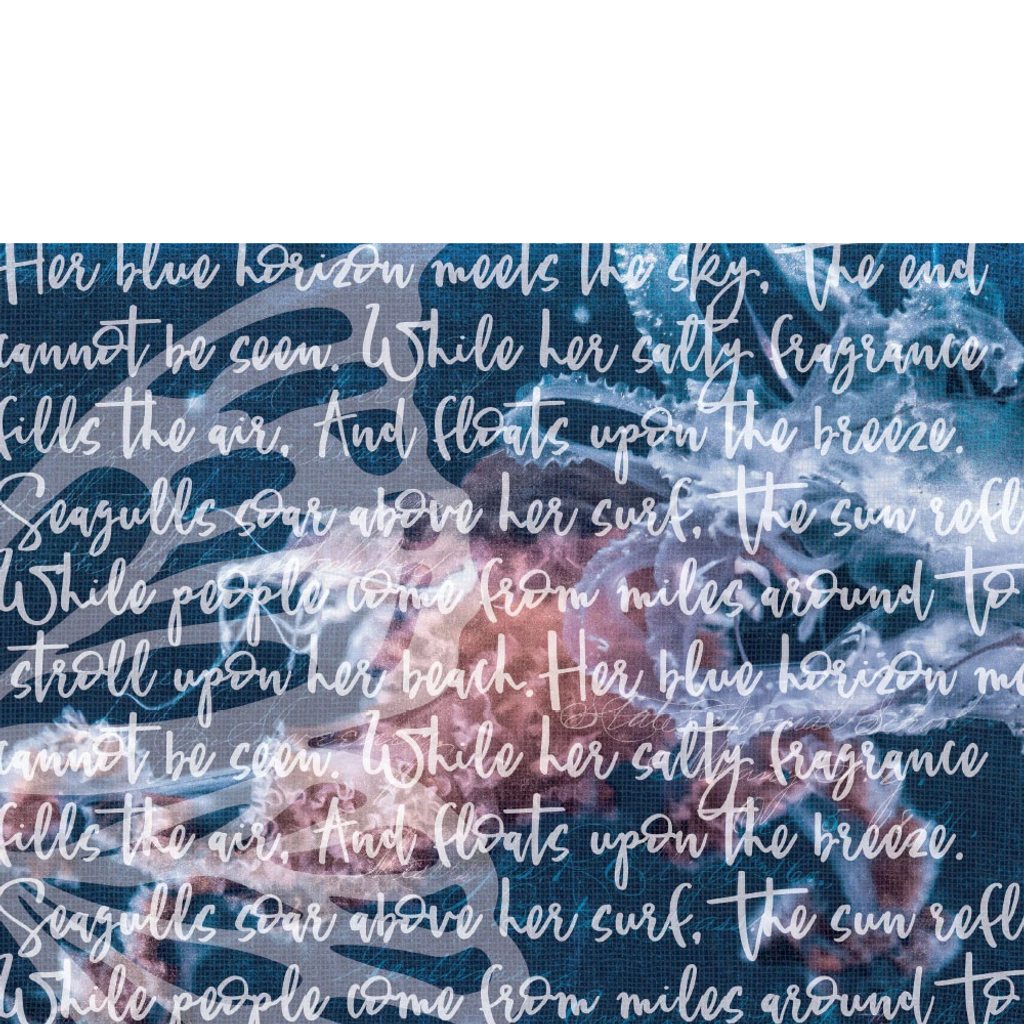 Her blue horizon meets the sky, The end
cannot be seen. While her salty fragrance
fills the air, And floats upon the breeze.
Seagulls soar above her surf, The sun refl
While people come from miles around To
stroll upon her beach. Her blue horizon me
cannot be seen. While her salty fragrance
fills the air, And floats upon the breeze.
Seagulls soar above her surf, The sun refl
While people come from miles around To